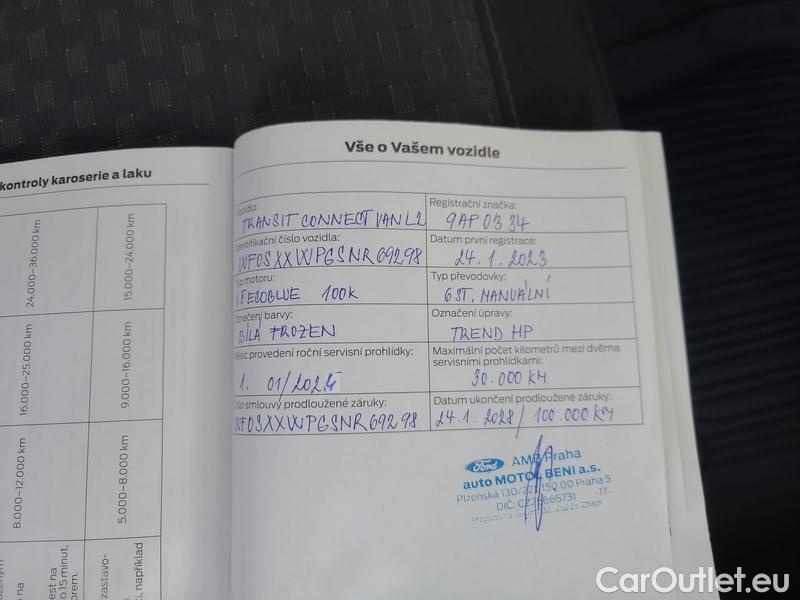 kontroly karoserie a laku
24.000–36.000 km
15.000–24.000 km
16.000–25.000 km
9.000–16.000 km
8.000–12.000 km
5.000–8.000 km
Vše o Vašem vozidle
Vozidlo:
TRANSIT CONNECT VAN L2
Registrační značka:
9AP 0334
Identifikační číslo vozidla:
WF0SXXWPGSNR69298
Datum první registrace:
24.1.2023
Typ motoru:
ECOBLUE 100k
Typ převodovky:
6 ST. MANUÁLNÍ
Označení barvy:
BÍLÁ FROZEN
Označení úpravy:
TREND HP
Měsíc provedení roční servisní prohlídky:
1. 01/2024
Maximální počet kilometrů mezi dvěma
servisními prohlídkami:
30.000 KM
Číslo smlouvy prodloužené záruky:
WF0SXXWPGSNR69298
Datum ukončení prodloužené záruky:
24.1.2028/100.000 KM
Ford
AMB Praha
auto MOTOL BENI a.s.
Plzeňská 130/221, 150 00 Praha 5
DIČ: CZ26665731 -17-
CarOutlet.eu